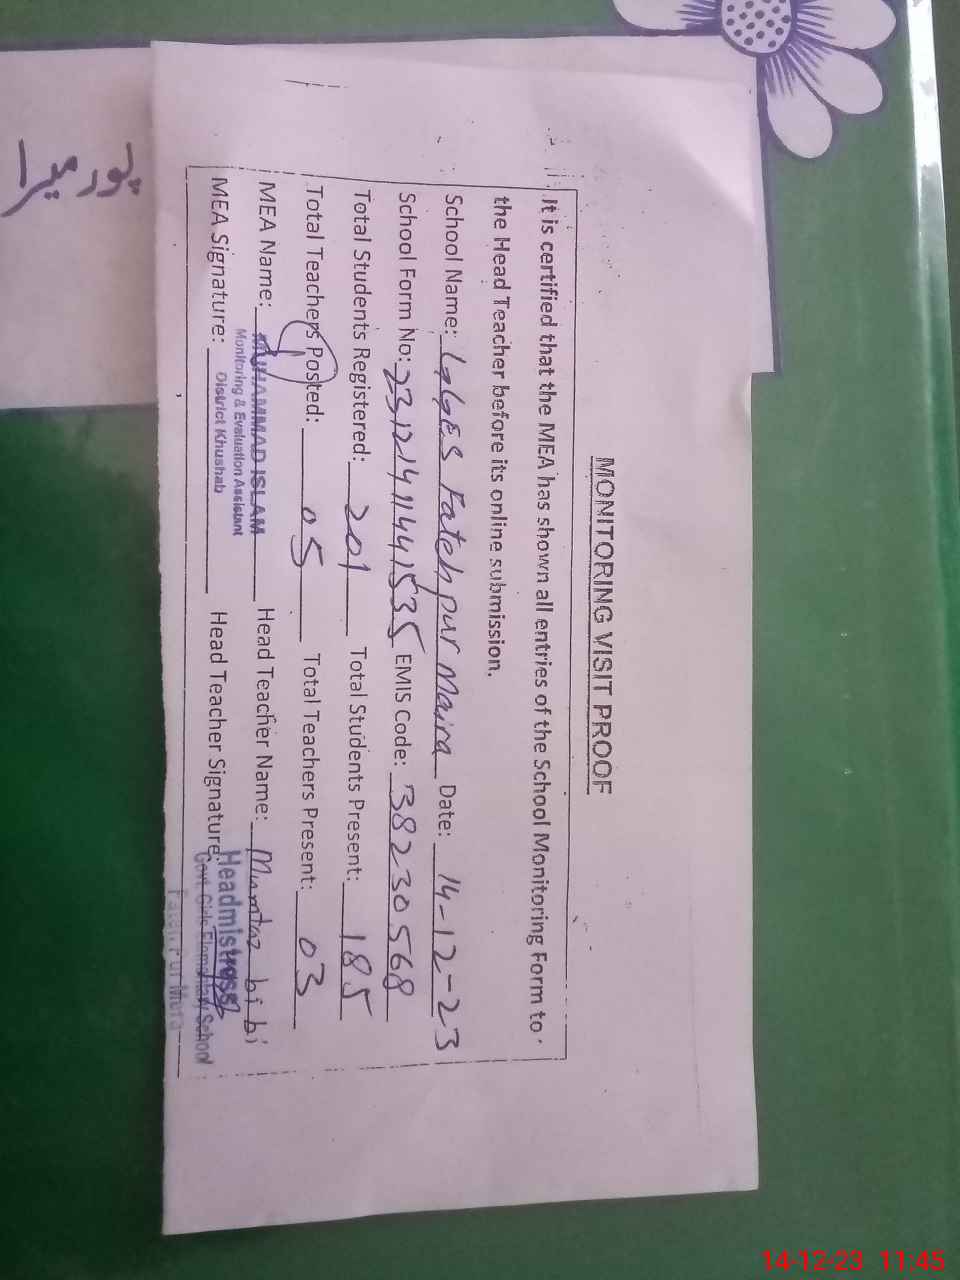 MONITORING VISIT PROOF
It is certified that the MEA has shown all entries of the School Monitoring Form to
the Head Teacher before its online submission.
School Name: GGES Fatehpur Maira Date: 14-12-23
School Form No: 23121411441535 EMIS Code: 38230568
Total Students Registered: 201 Total Students Present: 185
Total Teachers Posted: 05 Total Teachers Present: 03
MEA Name: MUHAMMAD ISLAM Head Teacher Name: Mumtaz bi bi
Monitoring & Evaluation Assistant
District Khushab
MEA Signature: Head Teacher Signature:
Headmistress
Govt. Girls Elementary School
Fateh Pur Mura
14-12-23 11:45